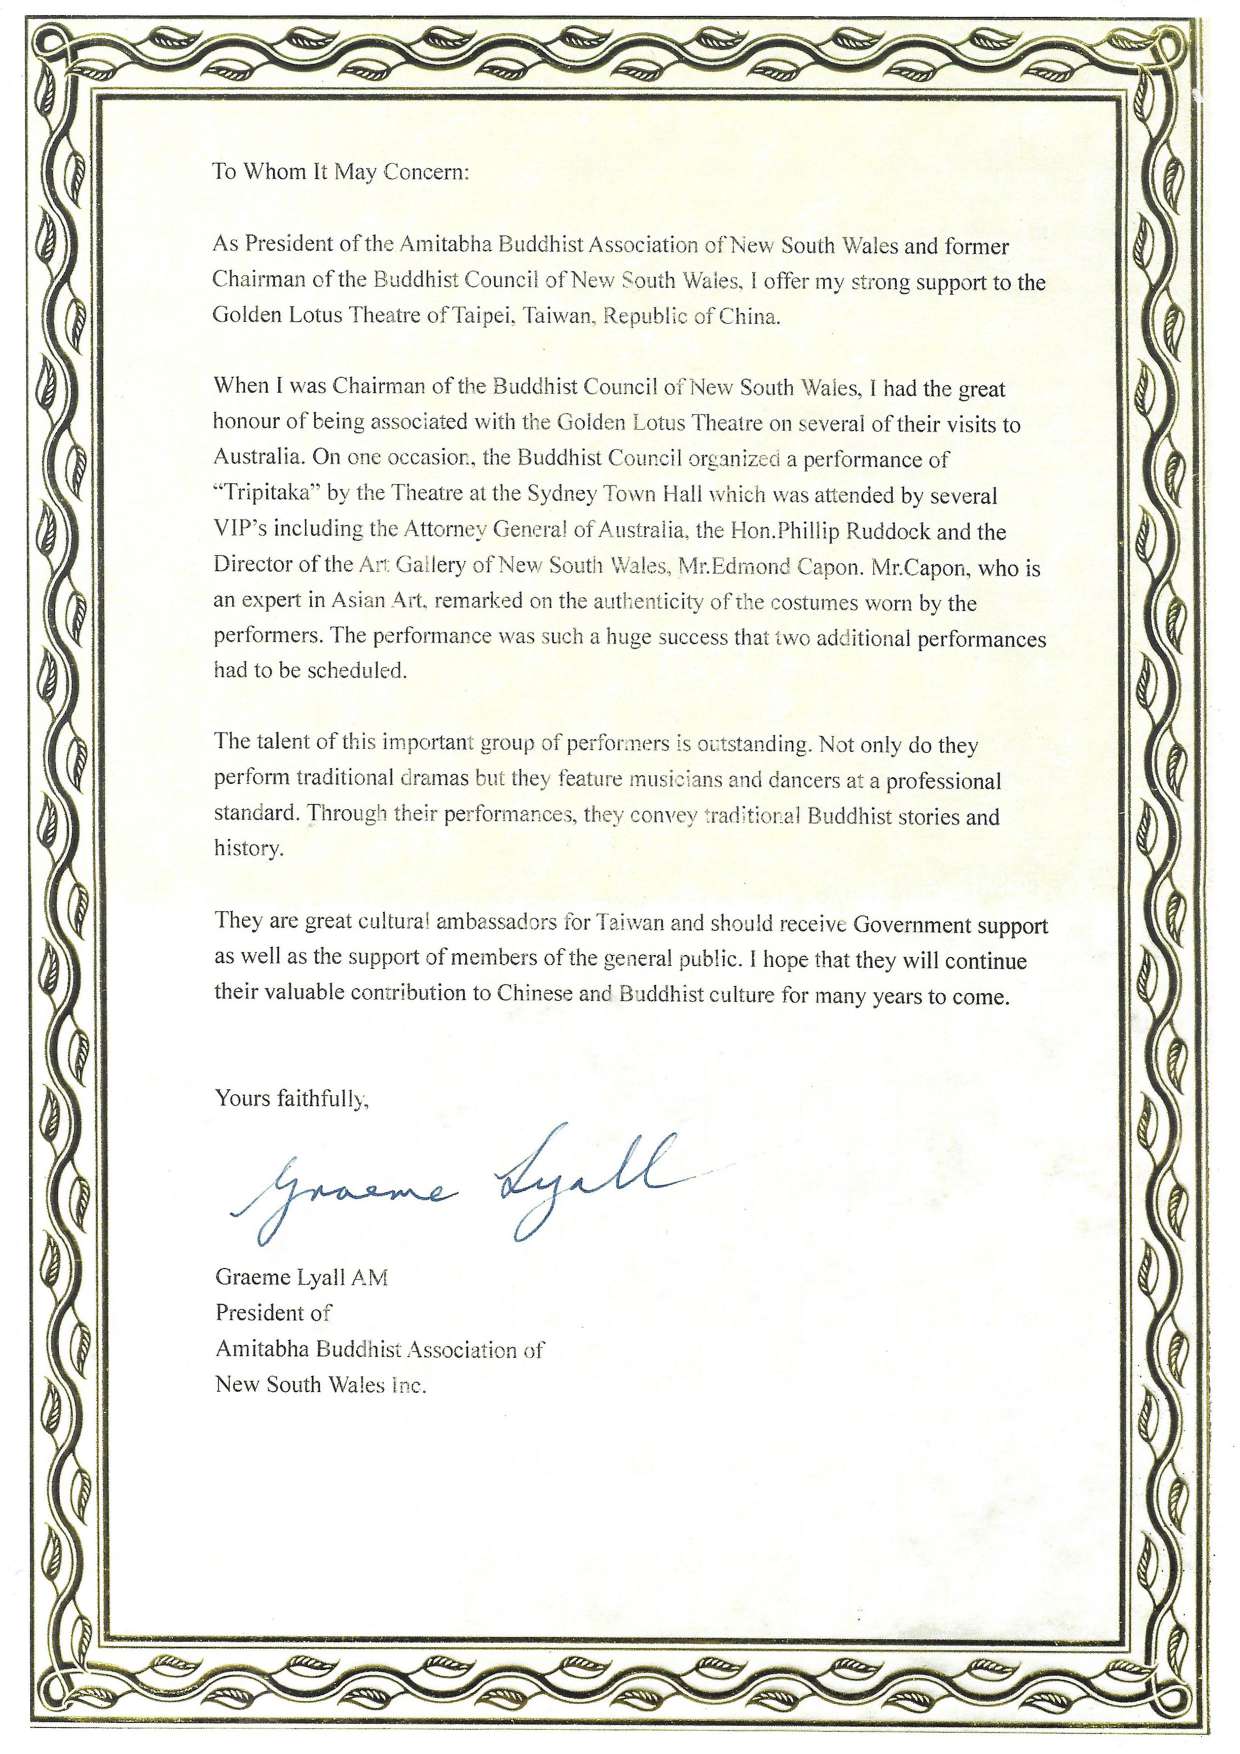 To Whom It May Concern:
As President of the Amitabha Buddhist Association of New South Wales and former
Chairman of the Buddhist Council of New South Wales, I offer my strong support to the
Golden Lotus Theatre of Taipei, Taiwan, Republic of China.
When I was Chairman of the Buddhist Council of New South Wales, I had the great
honour of being associated with the Golden Lotus Theatre on several of their visits to
Australia. On one occasion, the Buddhist Council organized a performance of
“Tripitaka” by the Theatre at the Sydney Town Hall which was attended by several
VIP’s including the Attorney General of Australia, the Hon.Phillip Ruddock and the
Director of the Art Gallery of New South Wales, Mr.Edmond Capon. Mr.Capon, who is
an expert in Asian Art, remarked on the authenticity of the costumes worn by the
performers. The performance was such a huge success that two additional performances
had to be scheduled.
The talent of this important group of performers is outstanding. Not only do they
perform traditional dramas but they feature musicians and dancers at a professional
standard. Through their performances, they convey traditional Buddhist stories and
history.
They are great cultural ambassadors for Taiwan and should receive Government support
as well as the support of members of the general public. I hope that they will continue
their valuable contribution to Chinese and Buddhist culture for many years to come.
Yours faithfully,
Graeme Lyall
Graeme Lyall AM
President of
Amitabha Buddhist Association of
New South Wales Inc.